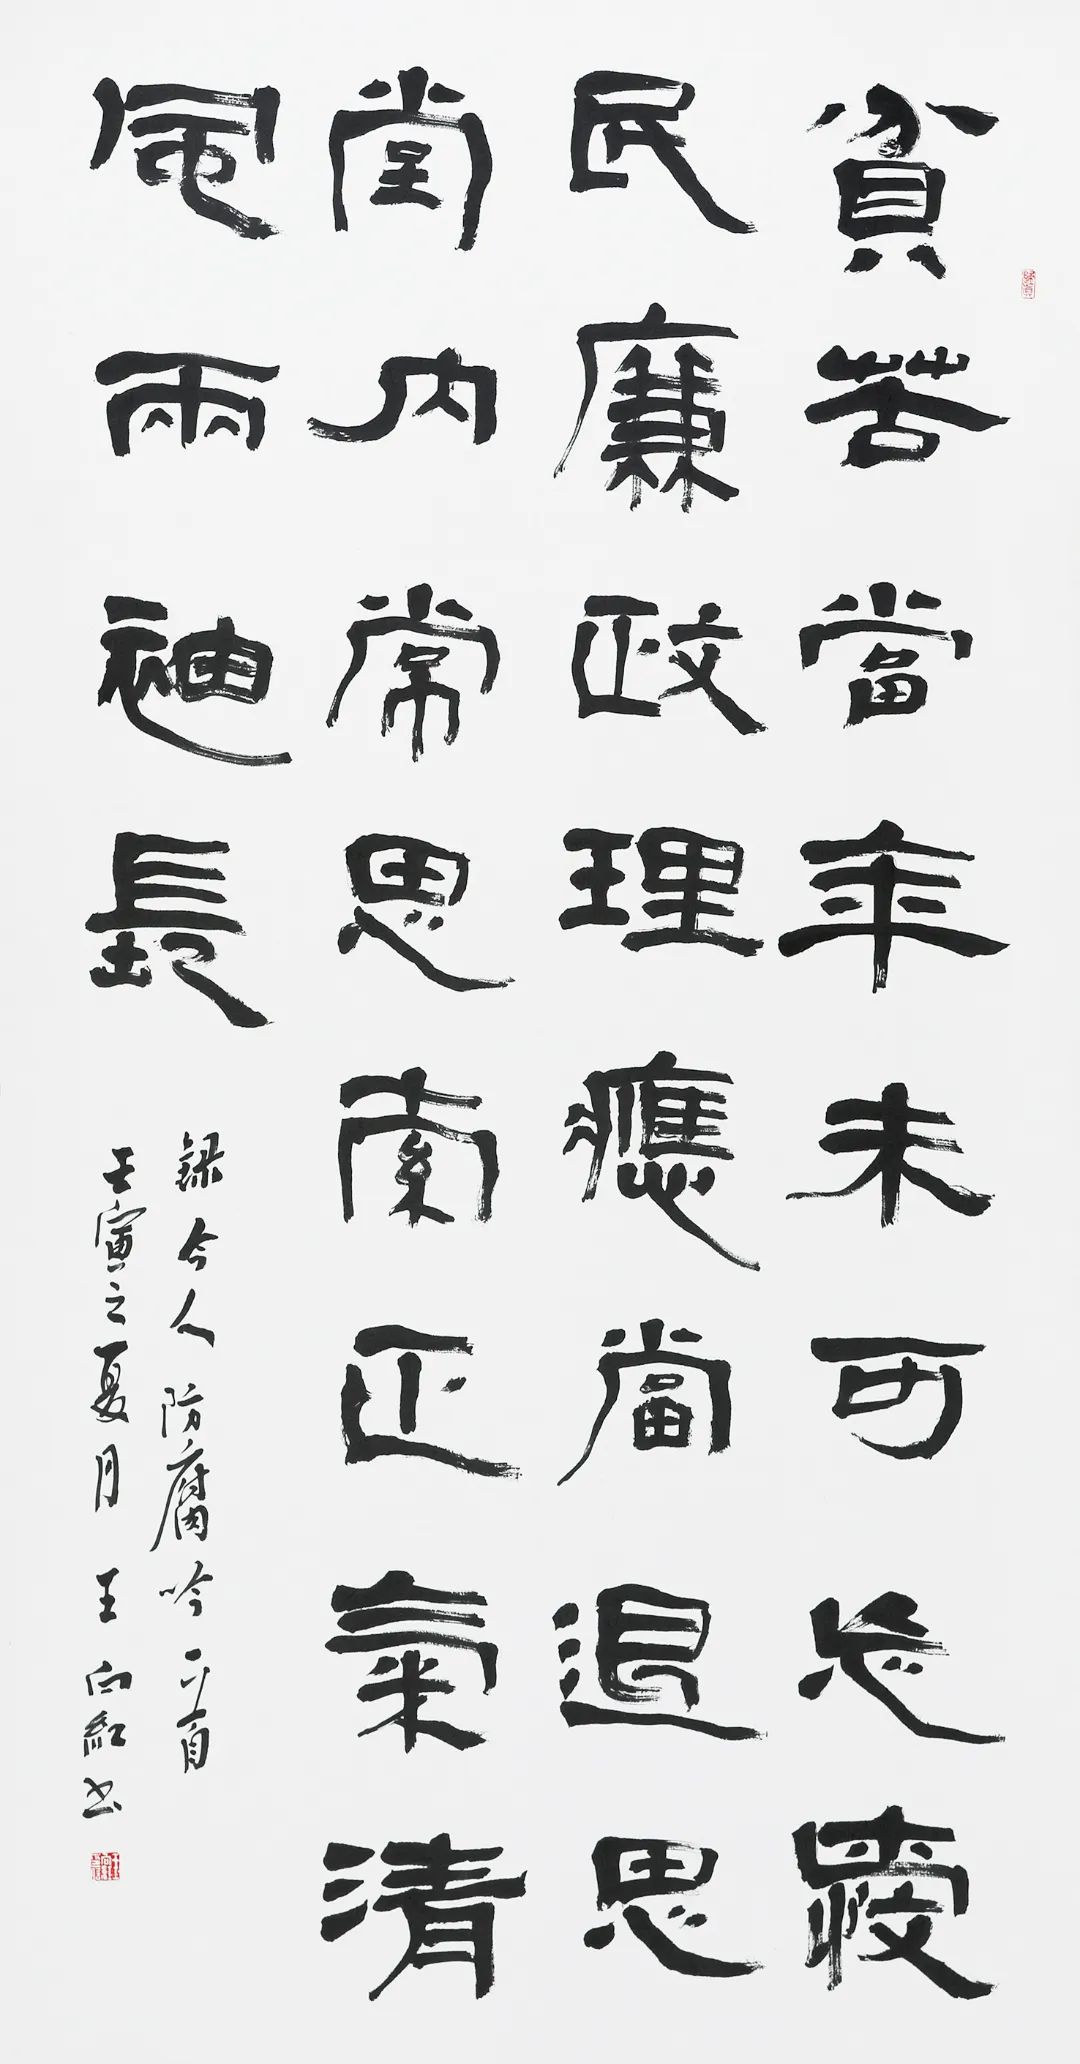 貧苦當年未可忘愛
民廉政理應當退思
堂内常思索正氣清
風兩袖長
録今人防腐吟一首
壬寅之夏月王向紅书